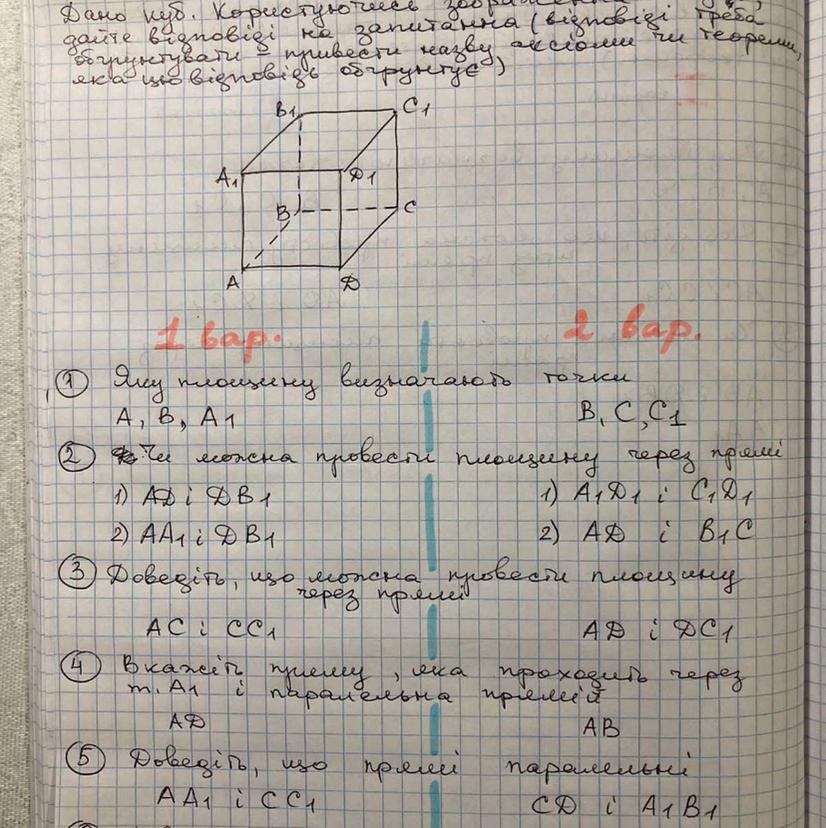 Дано куб. Користуючись
дайте відповіді на запитання (відповіді треба
обгрунтувати – привести назву аксіоми чи теореми,
яка цю відповідь обгрунтує)
B1 C1
A1 D1
B C
A D
1 вар. 2 вар.
1 Яку площину визначають точки
A, B, A1 B, C, C1
2 Чи можна провести площину через прямі
1) AD і DB1 1) A1D1 і C1D1
2) AA1 і DB1 2) AD і B1C
3 Доведіть, що можна провести площину
через прямі
AC і CC1 AD і DC1
4 Вкажіть пряму, яка проходить через
т. A1 і паралельна прямій
AD AB
5 Доведіть, що прямі паралельні
AA1 і CC1 CD і A1B1